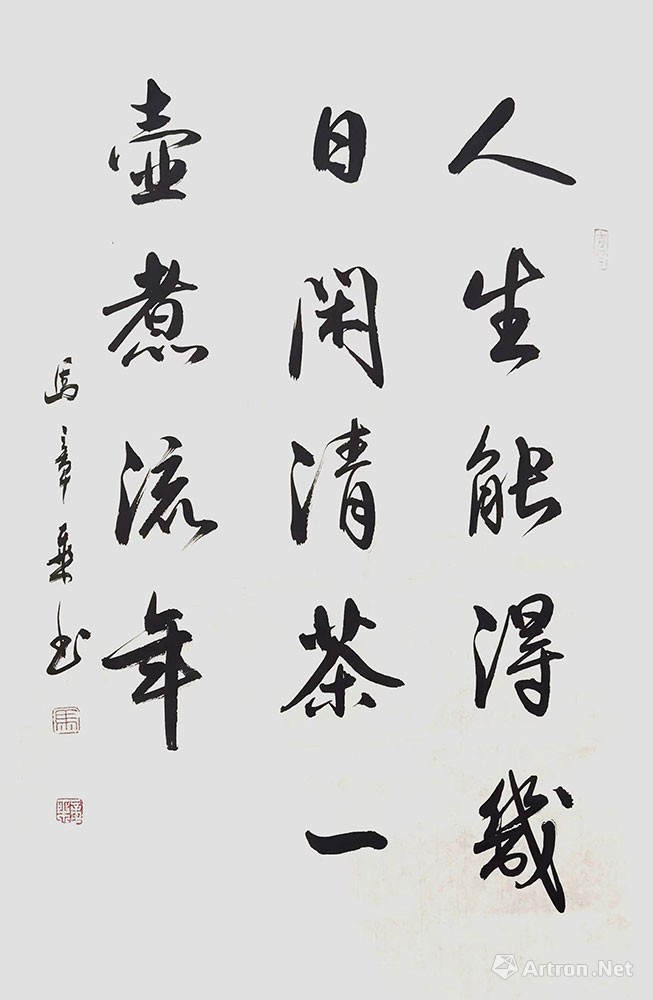 人生能得幾
日閑清茶一
壺煮流年
馬章乘书
馬
Artron.Net